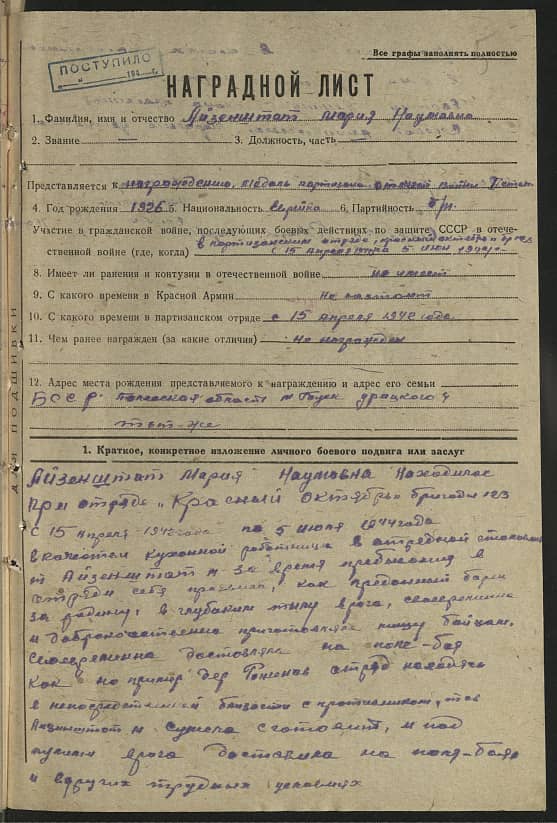 5
Все графы заполнять полностью
ПОСТУПИЛО
194 г.
НАГРАДНОЙ ЛИСТ
1. Фамилия, имя и отчество Айзенштат Мария Наумовна
2. Звание — 3. Должность, часть —
Представляется к награждению, медаль партизана отечест войны
4. Год рождения 1926 5. Национальность еврейка 6. Партийность б/п
Участие в гражданской войне, последующих боевых действиях по защите СССР в отече-
ственной войне (где, когда) в партизанском отряде
с 15 апреля 5 июля 1944г
8. Имеет ли ранения и контузии в отечественной войне не имеет
9. С какого времени в Красной Армии
10. С какого времени в партизанском отряде с 15 апреля 1942 года
11. Чем ранее награжден (за какие отличия) не награжден
12. Адрес места рождения представляемого к награждению и адрес его семьи
БССР Полесская область
ДЛЯ ПОДШИВКИ
1. Краткое, конкретное изложение личного боевого подвига или заслуг
Айзенштат Мария Наумовна находилас
при отряде „Красный октябрь" бригады 123
с 15 апреля 1942 года по 5 июля 1944 года
в качестве кухонной работницы в отрядной
т Айзенштат м за время пребывания в
отряде себя как преданный
за родину, в глубоком тылу врага, своевременно
и доброкачественно приготовляла пищу бойцам,
своевременна доставляла на поле-боя
как на пример дер отряд
в непосредственной близости с противником, тов
Айзенштат м. сумела сготовит, и под
врага доставила на поля-боя
и в других трудных условиях